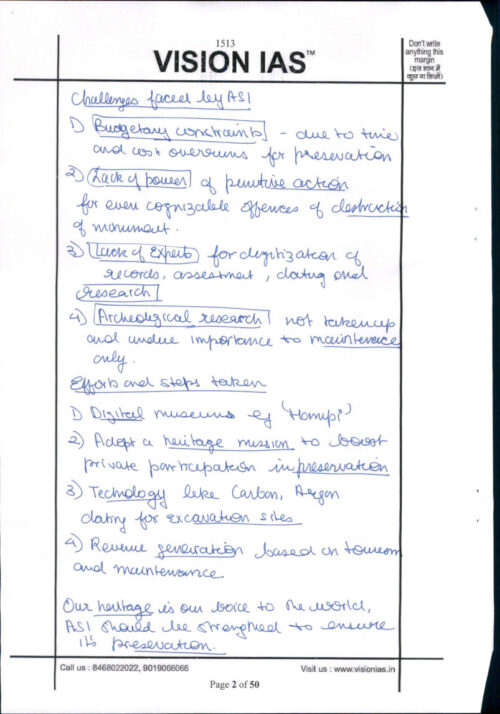 1513
VISION IAS™
Don't write
anything this
margin
(इस भाग में
कुछ ना लिखें)
Challenges faced by ASI
1) Budgetary constraints - due to time
and cost overruns for preservation
2) Lack of power of punitive action
for even cognizable offences of destruction
of monument.
3) Lack of Experts for digitization of
records, assestment, dating and
research
4) Archeological research not taken up
and undue importance to maintenance
only.
Efforts and steps taken
1) Digital museums eg 'Hampi'
2) Adopt a heritage mission to boost
private participation in preservation
3) Technology like Carbon, Argon
dating for excavation sites
4) Revenue generation based on tourism
and maintenance.
Our heritage is our voice to the world,
ASI should be strengthed to ensure
its preservation.
Call us : 8468022022, 9019066066
Visit us : www.visionias.in
Page 2 of 50